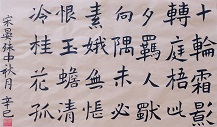 十輪霜影
轉庭梧此
夕羈人獨
向隅未必
素娥無悵
恨玉蟾清
冷桂花孤
宋晏殊中秋月 辛巳